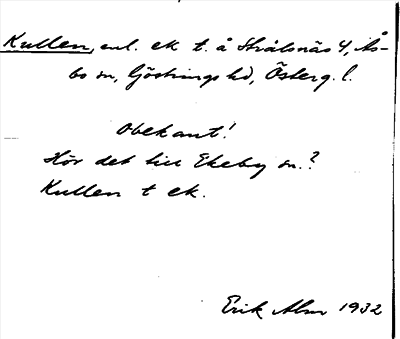 Kullen, enl. ek t. å Strålsnäs 4, Ås-
bo sn, Göstrings hd, Österg. l.
Obekant!
Hör det till Ekeby sn.?
Kullen t ek.
Erik Alm 1932